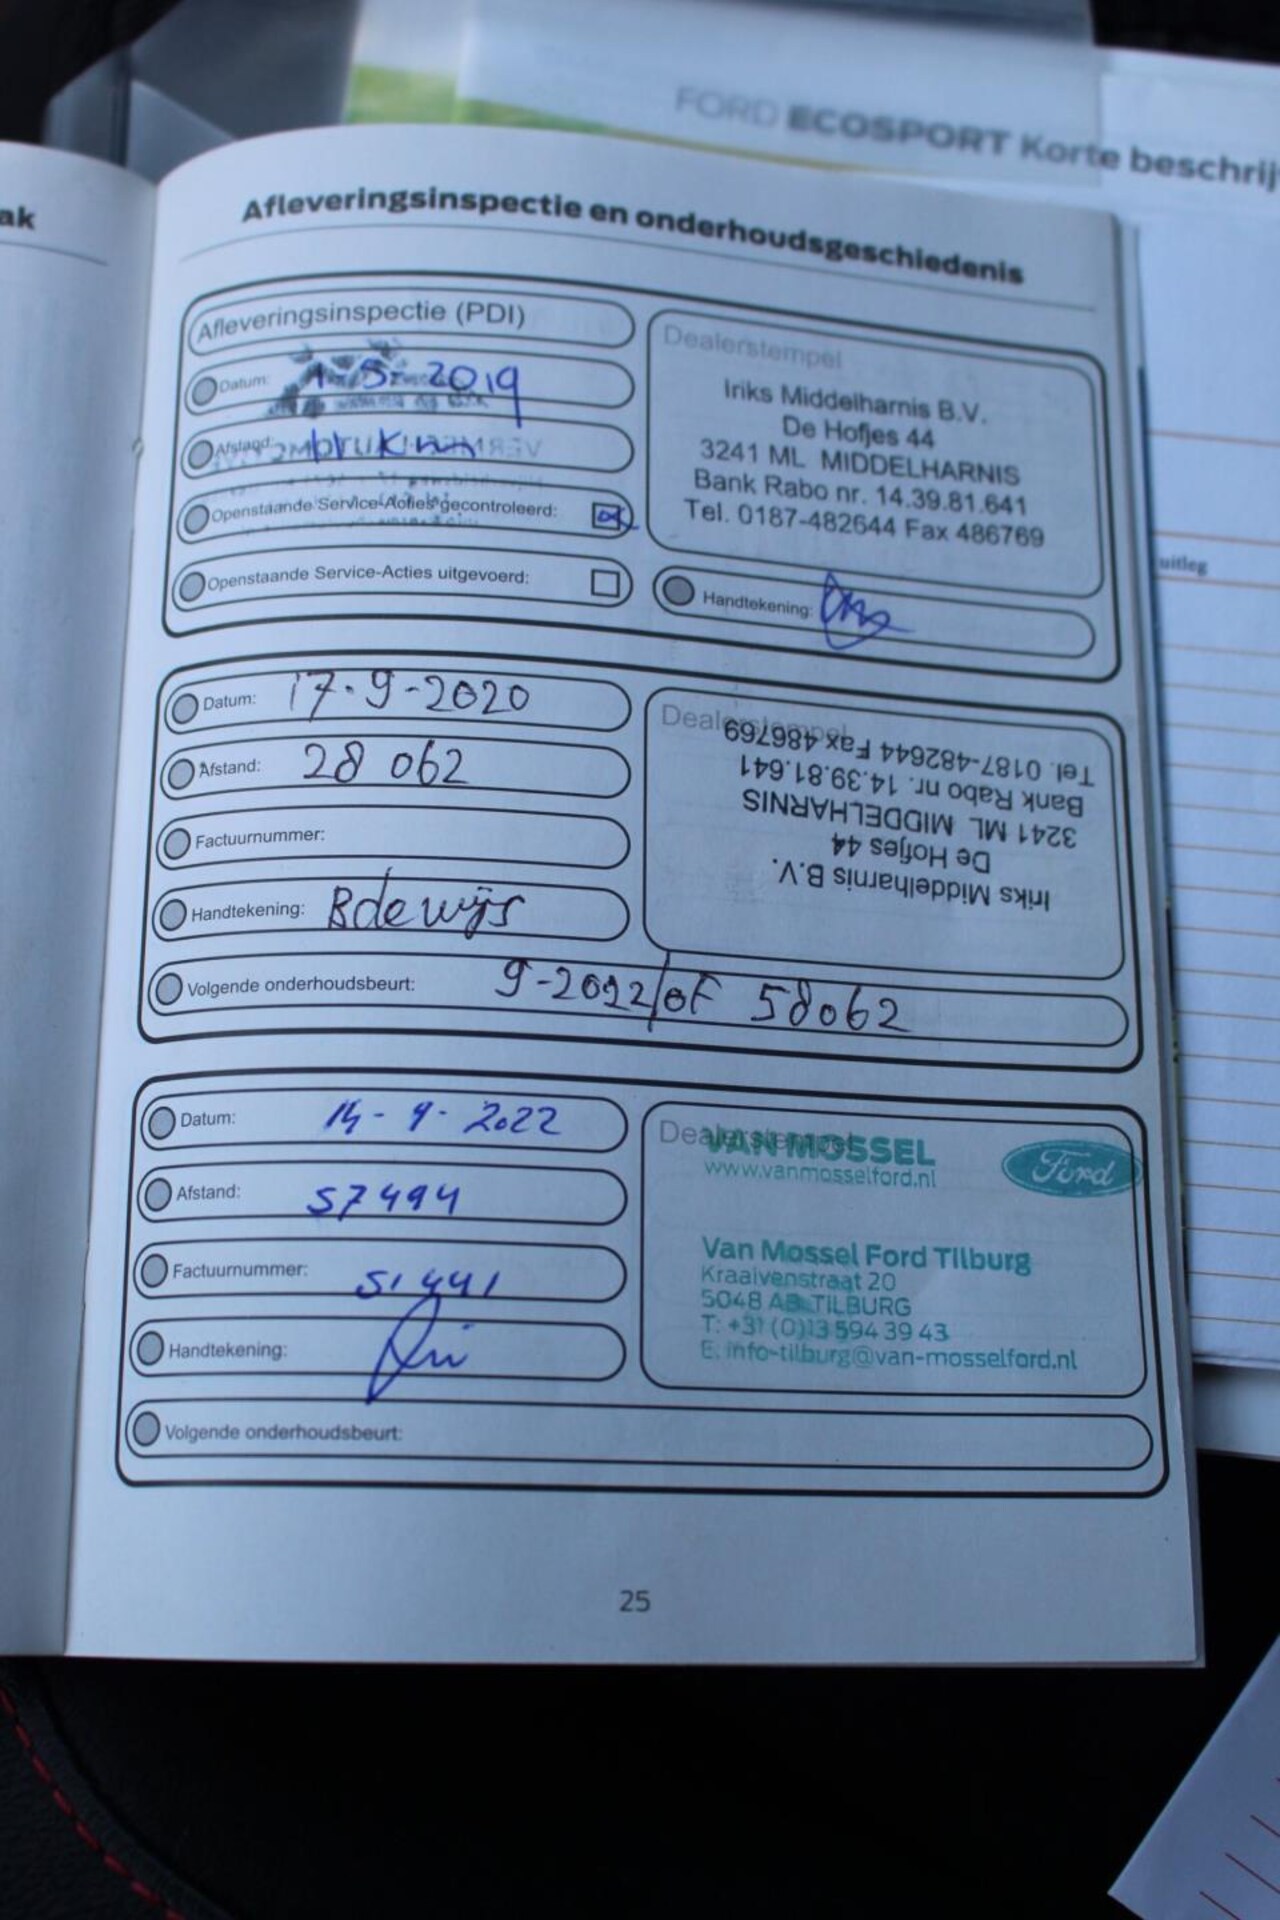 FORD ECOSPORT Korte beschrij
ak
Afleveringsinspectie en onderhoudsgeschiedenis
Afleveringsinspectie (PDI)
Datum: 1-5-2019
Afstand: km
Openstaande Service-Acties gecontroleerd:
Openstaande Service-Acties uitgevoerd:
Dealerstempel
Iriks Middelharnis B.V.
De Hofjes 44
3241 ML MIDDELHARNIS
Bank Rabo nr. 14.39.81.641
Tel. 0187-482644 Fax 486769
Handtekening:
uitleg
Datum: 17-9-2020
Afstand: 28 062
Factuurnummer:
Handtekening: B de wijs
Volgende onderhoudsbeurt: 9-2022/of 58062
Dealerstempel
Iriks Middelharnis B.V.
De Hofjes 44
3241 ML MIDDELHARNIS
Bank Rabo nr. 14.39.81.641
Tel. 0187-482644 Fax 486769
Datum: 14-9-2022
Afstand: 57494
Factuurnummer: 51441
Handtekening:
Volgende onderhoudsbeurt:
Dealerstempel
VAN MOSSEL
www.vanmosselford.nl
Ford
Van Mossel Ford Tilburg
Kraaivenstraat 20
5048 AB TILBURG
T: +31 (0)13 594 39 43
E: info-tilburg@van-mosselford.nl
25